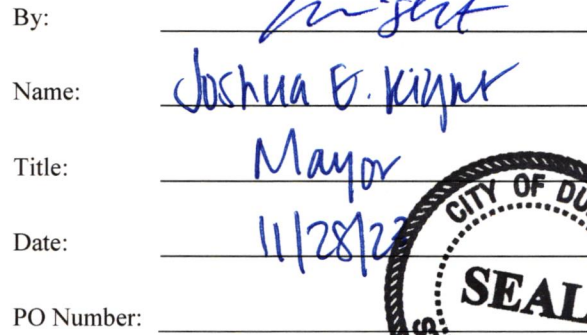 By:
Name: Joshua E. Kight
Title: Mayor
Date: 11/28/23
PO Number:
CITY OF DU
SEAL